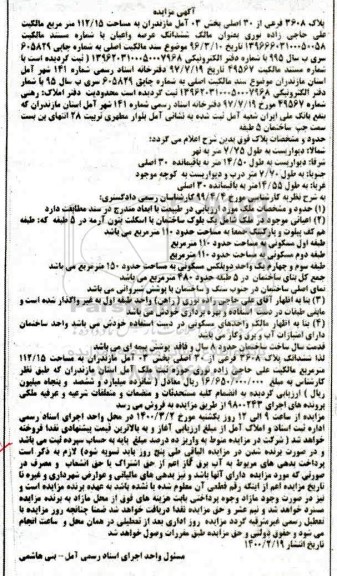 آگهی مزایده
پلاک ۳۶۰۸ فرعی از ۳۰ اصلی بخش ۰۳ آمل مازندران به مساحت ۱۱۲/۱۵ متر مربع مالکیت
علی حاجی زاده نوری بعنوان مالک ششدانگ عرصه واعیان با شماره مستند مالکیت
۱۳۹۶۶۰۳۱۰۰۰۵۰۰۵۸ تاریخ ۹۶/۳/۱۰ موضوع سند مالکیت اصلی به شماره چاپی ۶۰۵۸۲۹
سری ب سال ۹۵ با شماره دفتر الکترونیکی ۱۳۹۶۲۰۳۱۰۰۰۵۰۰۰۷۹۶۸ ثبت گردیده است با
شماره مستند مالکیت ۴۹۵۶۷ تاریخ ۹۷/۷/۱۹ دفترخانه اسناد رسمی شماره ۱۴۱ شهر آمل
استان مازندران موضوع سند مالکیت اصلی به شماره چاپی ۶۰۵۸۲۹ سری ب سال ۹۵ با شمار
دفتر الکترونیکی ۱۳۹۶۲۰۳۱۰۰۰۵۰۰۰۷۹۶۸ ثبت گردیده است محدودیت دفتر املاک: رهنی
شماره ۴۹۵۶۷ مورخ ۹۷/۷/۱۹ دفترخانه اسناد رسمی شماره ۱۴۱ شهر آمل استان مازندران که
بنفع بانک ملی ایران شعبه آمل ثبت شده به نشانی آمل بلوار مطهری تربیت ۲۸ انتهای بن بست
سمت چپ ساختمان ۵ طبقه
حدود و مشخصات پلاک فوق بدین شرح اعلام می گردد:
شمالا: دیواریست به طول ۷/۷۵ متر به نهر
شرقا: دیواریست به طول ۱۴/۵۰ متر به باقیمانده ۳۰ اصلی
جنوبا: به طول ۷/۷۰ متر درب و دیواریست به کوچه موجود
غربا: به طول ۱۴/۵۵متر به باقیمانده ۳۰ اصلی
به شرح نظریه کارشناسی مورخ ۹۹/۴/۲ کارشناسان رسمی دادگستری:
(۱) حدود و مشخصات ملک مورد ارزیابی در طبیعت با ابعاد مندرج در سند مطابقت دارد
(۲) اعیانی موجود در ملک شامل یک بلوک ساختمان با اسکلت بتون آرمه در ۵ طبقه که: طبقه
هم کف پیلوت و پارکینگ جمعا به مساحت حدود ۱۱۰ مترمربع می باشد
طبقه اول مسکونی به مساحت حدود ۱۱۰ مترمربع
طبقه دوم مسکونی به مساحت حدود ۱۱۰ مترمربع
طبقه سوم و چهارم یک واحد دوبلکس مسکونی به مساحت حدود ۱۵۰ مترمربع می باشد
جمع کل بنای ساختمان در ۵ طبقه حدود ۴۸۰ مترمربع می باشد
نمای اصلی ساختمان در جنوب سنگ و ساختمان با پوشش شیروانی می باشد
(۳) بنا به اظهار آقای علی حاجی زاده نوری ( راهن) واحد طبقه اول به غیر واگذار شده است و
مابقی طبقات در دست استفاده و بهره برداری خودش می باشد
(۴) بنا به اظهار مالک واحدهای مسکونی در دست استفاده خودش می باشد واحد ساختمان
دارای امتیازات آب و برق وگاز می باشد
قدمت سال ساخت ساختمان حدود ۸ سال و فاقد پوشش بیمه ای می باشد
لذا ششدانگ پلاک ۳۶۰۸ فرعی از ۳۰ اصلی بخش ۰۳ آمل مازندران به مساحت ۱۱۲/۱۵
مترمربع مالکیت علی حاجی زاده نوری حوزه ثبت ملک آمل استان مازندران که طبق نظر
کارشناس به مبلغ ۱۶/۶۵۰/۰۰۰/۰۰۰ ریال معادل ( شانزده میلیارد و ششصد و پنجاه میلیون
ریال ) ارزیابی گردیده به انضمام کلیه مستحدثات و منضمات و متعلقات شرعیه و عرفیه ملکی
پرونده های اجرای ۹۸۰۰۲۴۳ از طریق مزایده به فروش می رسد
مزایده از ساعت ۹ الی ۱۲ روز یکشنبه مورخ ۱۴۰۰/۳/۲ در محل واحد اجرای اسناد رسمی
اداره ثبت اسناد و املاک آمل از مبلغ ارزیابی آغاز و به بالاترین قیمت پیشنهادی نقدا فروخته
خواهد شد ( شرکت در مزایده منوط به واریز ده درصد مبلغ پایه به حساب سپرده ثبت می باشد
و در صورت برنده شدن در مزایده الباقی طی پنج روز باید تسویه شود) لازم به ذکر است
پرداخت بدهی های مربوط به آب برق گاز اعم از حق اشتراک یا حق انشعاب و مصرف در
صورتی که مورد مزایده دارای آنها باشد و نیز بدهی های مالیاتی و عوارض شهرداری و غیره تا
تاریخ مزایده اعم از اینکه رقم قطعی آن معلوم شده یا نشده باشد به عهده برنده مزایده است و
نیز در صورت وجود مازاد وجوه پرداختی بابت هزینه های فوق از محل مازاد به برنده مزایده
مسترد خواهد شد و نیم عشر و حق مزایده نقدا دریافت خواهد شد ضمنا چنانچه روز مزایده با
تعطیل رسمی غیرمترقبه گردد مزایده روز اداری بعد از تعطیلی در همان محل و ساعت انجام
می شود و حقوق دولتی و حق مزایده طبق مقررات وصول خواهد شد
تاریخ انتشار ۱۴۰۰/۲/۱۹
مسئول واحد اجرای اسناد رسمی آمل- بنی هاشمی